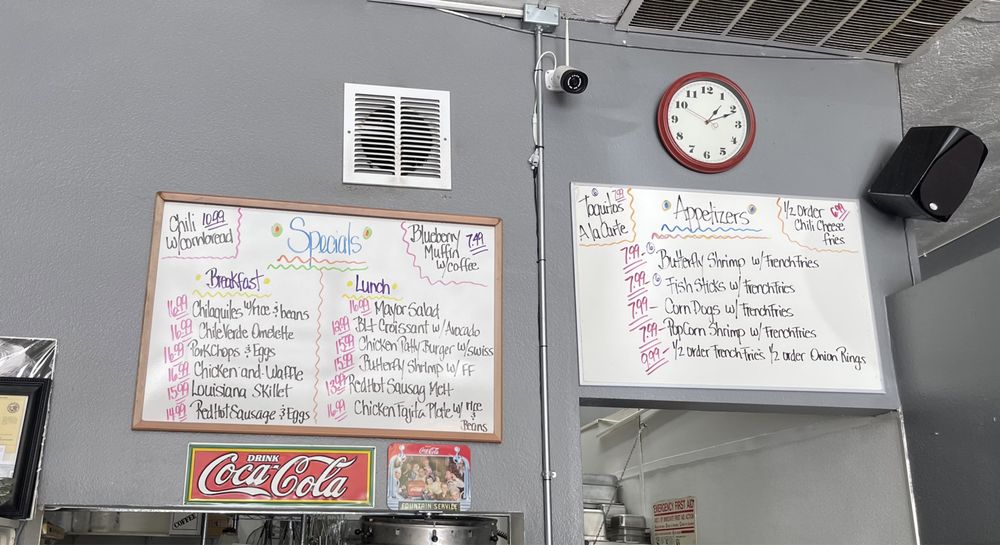 Chili 10.99
w/cornbread
Specials
Blueberry
Muffin 7.49
w/coffee
Breakfast
16.99 Chilaquiles w/rice & beans
16.99 Chile Verde Omelette
16.99 Pork Chops & Eggs
16.99 Chicken and Waffle
15.99 Louisiana Skillet
14.99 Red Hot Sausage & Eggs
Lunch
16.99 Mayor Salad
BLT Croissant w/ Avocado
15.99 Chicken Patty Burger w/swiss
15.99 Butterfly Shrimp w/ FF
13.99 Red Hot Sausag Melt
16.99 Chicken Fajita Plate w/ rice
&
Beans
6 7.99
Taquitos
A la Carte
Appetizers
1/2 order 6.99
Chili Cheese
fries
7.99 - 6 Butterfly Shrimp w/ French Fries
7.99 - 6 Fish Sticks w/ French Fries
7.99 - Corn Dogs w/ French Fries
7.99 - PopCorn Shrimp w/ French Fries
9.99 - 1/2 order French Fries 1/2 order Onion Rings
12
1
2
3
4
5
6
7
8
9
10
11
DRINK
Coca-Cola
Coca-Cola
FOUNTAIN SERVICE
COFFEE
EMERGENCY FIRST AID